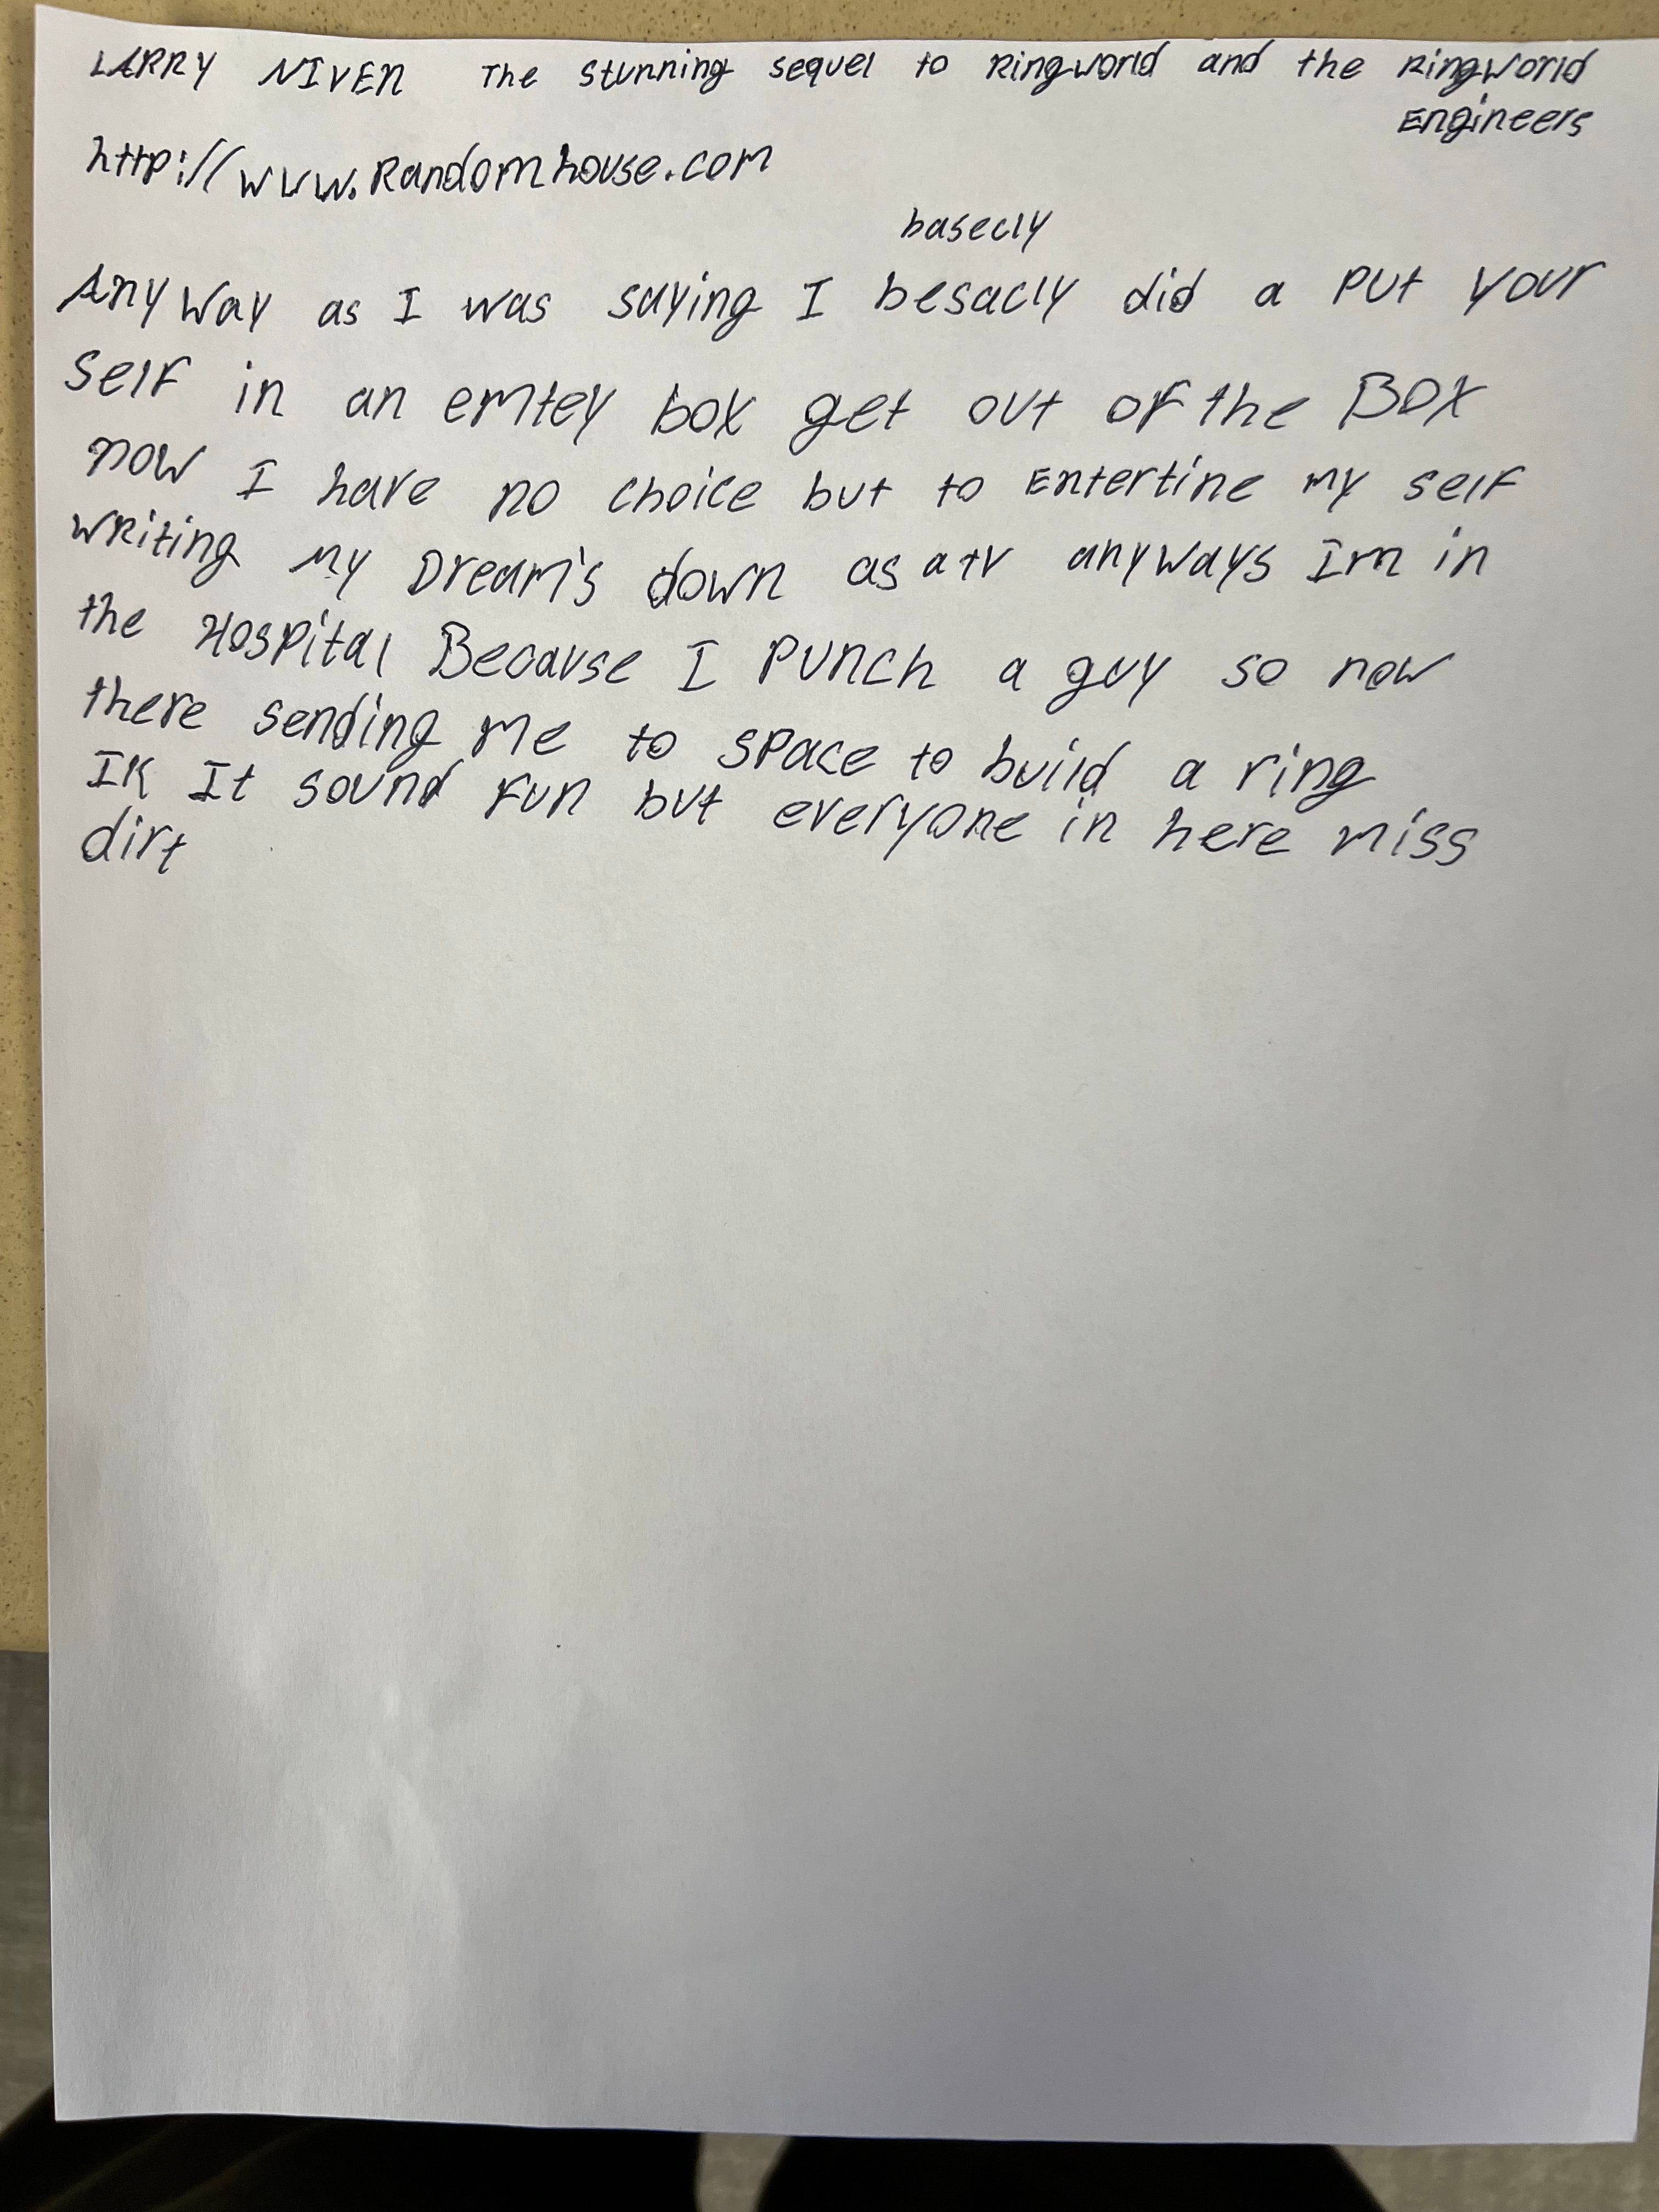 LARRY NIVEN The stunning sequel to Ringworld and the Ringworld
Engineers
http://www.Randomhouse.com
basecly
Anyway as I was saying I besacly did a put your
self in an emtey box get out of the Box
now I have no choice but to Entertine my self
writing my Dream's down as a tv anyways Im in
the Hospital Because I punch a guy so now
there sending me to space to build a ring
IK It sound fun but everyone in here miss
dirt